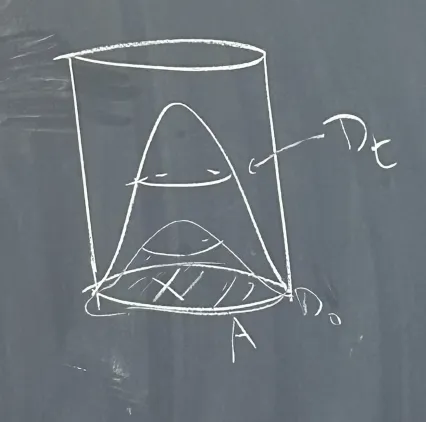 D_t
X
D_0
A